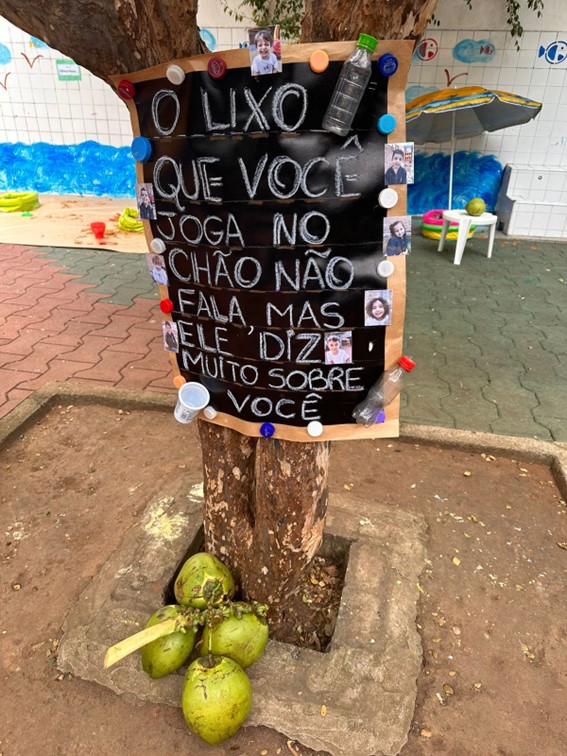 O LIXO
QUE VOCÊ
JOGA NO
CHÃO NÃO
FALA, MAS
ELE DIZ
MUITO SOBRE
VOCÊ